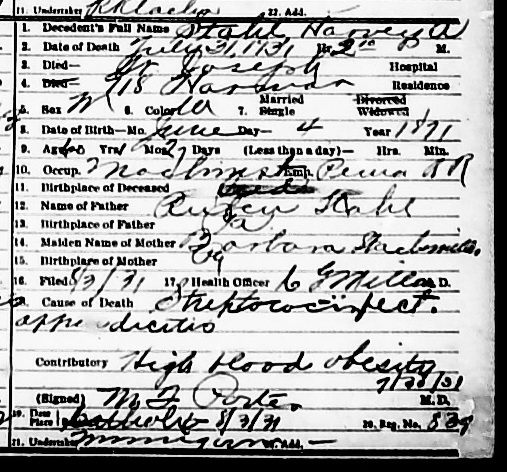 11. Undertaker 22. Add.
1. Decedent's Full Name Stahl, Harvey A
2. Date of Death July 31, 1931 Hr. 2 M.
3. Died— St Joseph Hospital
4. Died— 718 Harmar Residence
5. Sex M 6. Color W 7. Married Single Divorced Widowed
8. Date of Birth—Mo. June Day— 4 Year 1871
9. Age 60 Yrs. 1 Mos. 27 Days (Less than a day)— Hrs. Min.
10. Occup. Machinist Emp. Penna R R
11. Birthplace of Deceased
12. Name of Father Stahl
13. Birthplace of Father Pa
14. Maiden Name of Mother Barbara
15. Birthplace of Mother
16. Filed 8/3/31 17. Health Officer M. D.
Cause of Death Streptococ infect.
appendicitis
Contributory High blood obesity
7/30/31
(Signed) M. F. Porter M. D.
19. Date Place 8/3/31 20. Reg. No. 839
21. Undertaker Add. —